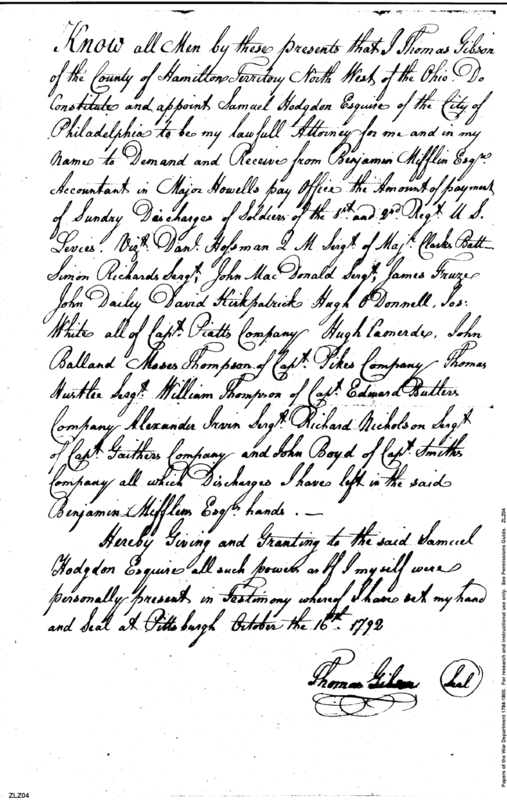 Know all Men by these presents that I Thomas Gibson
of the County of Hamilton Territory North West of the Ohio Do
Constitute and appoint Samuel Hodgdon Esquire of the City of
Philadelphia to be my lawfull Attorney for me and in my
Name to Demand and Receive from Benjamin Mifflin Esqr.
Accountant in Major Howells pay Office the Amount of payment
of Sundry Discharges of Soldiers of the 1st and 2nd Regt. U S.
Levies. Vizt. Danl. Hofsman 2 M Sergt. of Majr. Clarks Batt
Simon Richards Sergt, John Mac Donald Sergt, James Fruze
John Dailey David Kirkpatrick Hugh O'Donnell, Jos:
White all of Capt. Piatts Company Hugh Lamerde, John
Balland Moses Thompson of Capt. Pikes Company Thomas
Hustler Sergt. William Thompson of Capt. Edward Butlers
Company Alexander Irvin Sergt. Richard Nicholson Sergt
of Capt. Gaithers Company and John Boyd of Capt. Smiths
Company all which Discharges I have left in the said
Benjamin Mifflins Esqrs. hands. —
Hereby Giving and Granting to the said Samuel
Hodgdon Esquire all such powers as If I myself were
personally present in Testimony whereof I have set my hand
and Seal at Pittsburgh October the 16th. 1792
Thomas Gibson Seal
Papers of the War Department 1784-1800. For research and instructional use only. See Permissions Guide. ZLZ04
ZLZ04